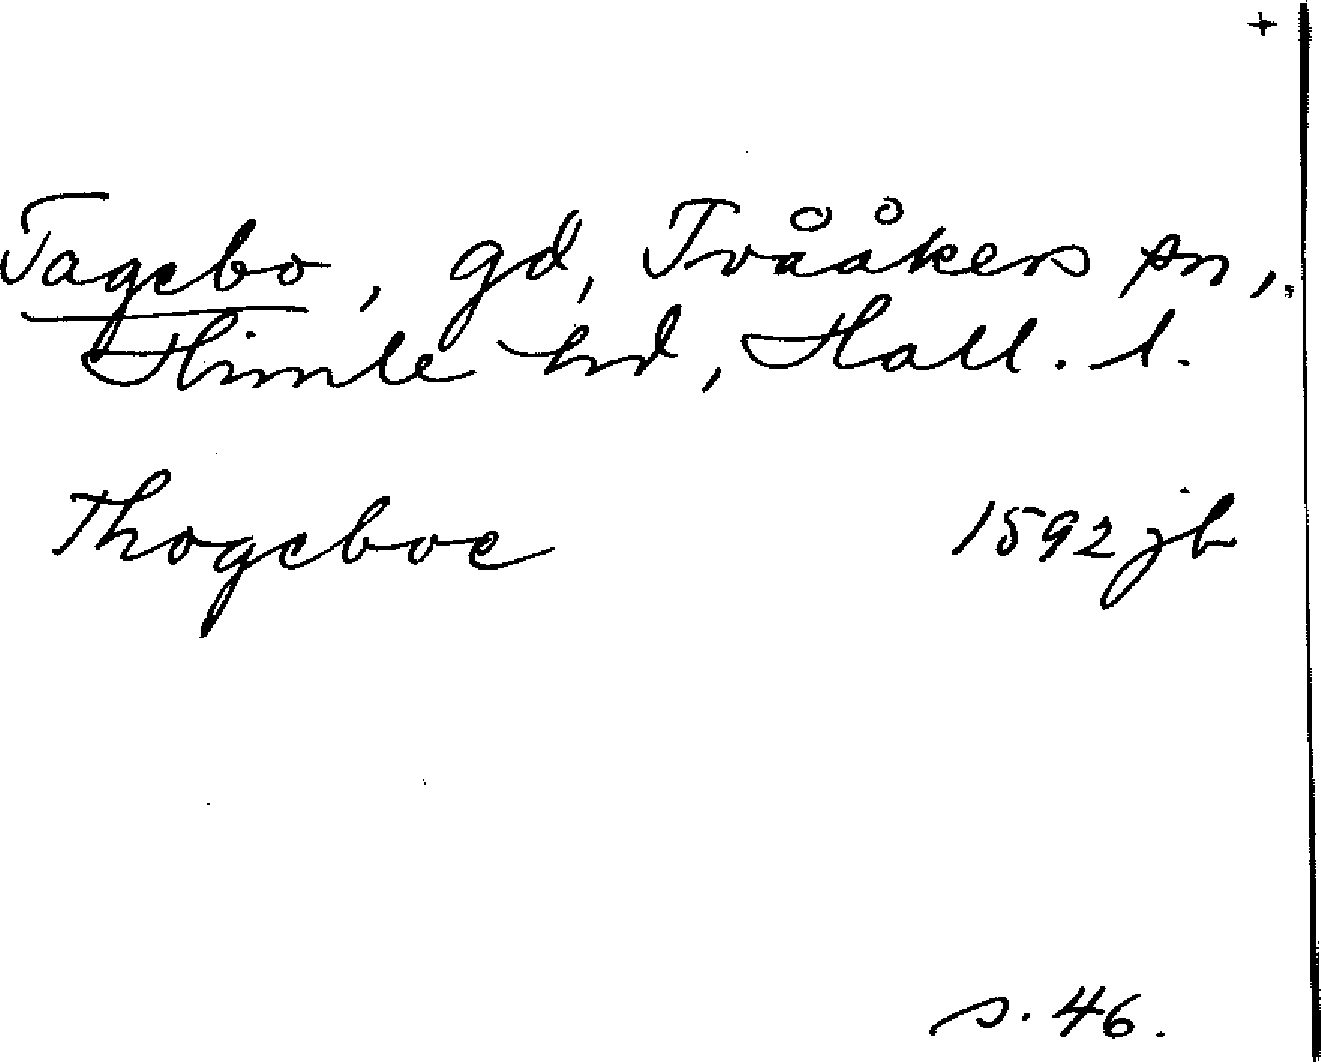 +
Tagebo, gd, Tvååkers sn,
Himle hd, Hall. l.
Thogeboe 1592 jb
s. 46.